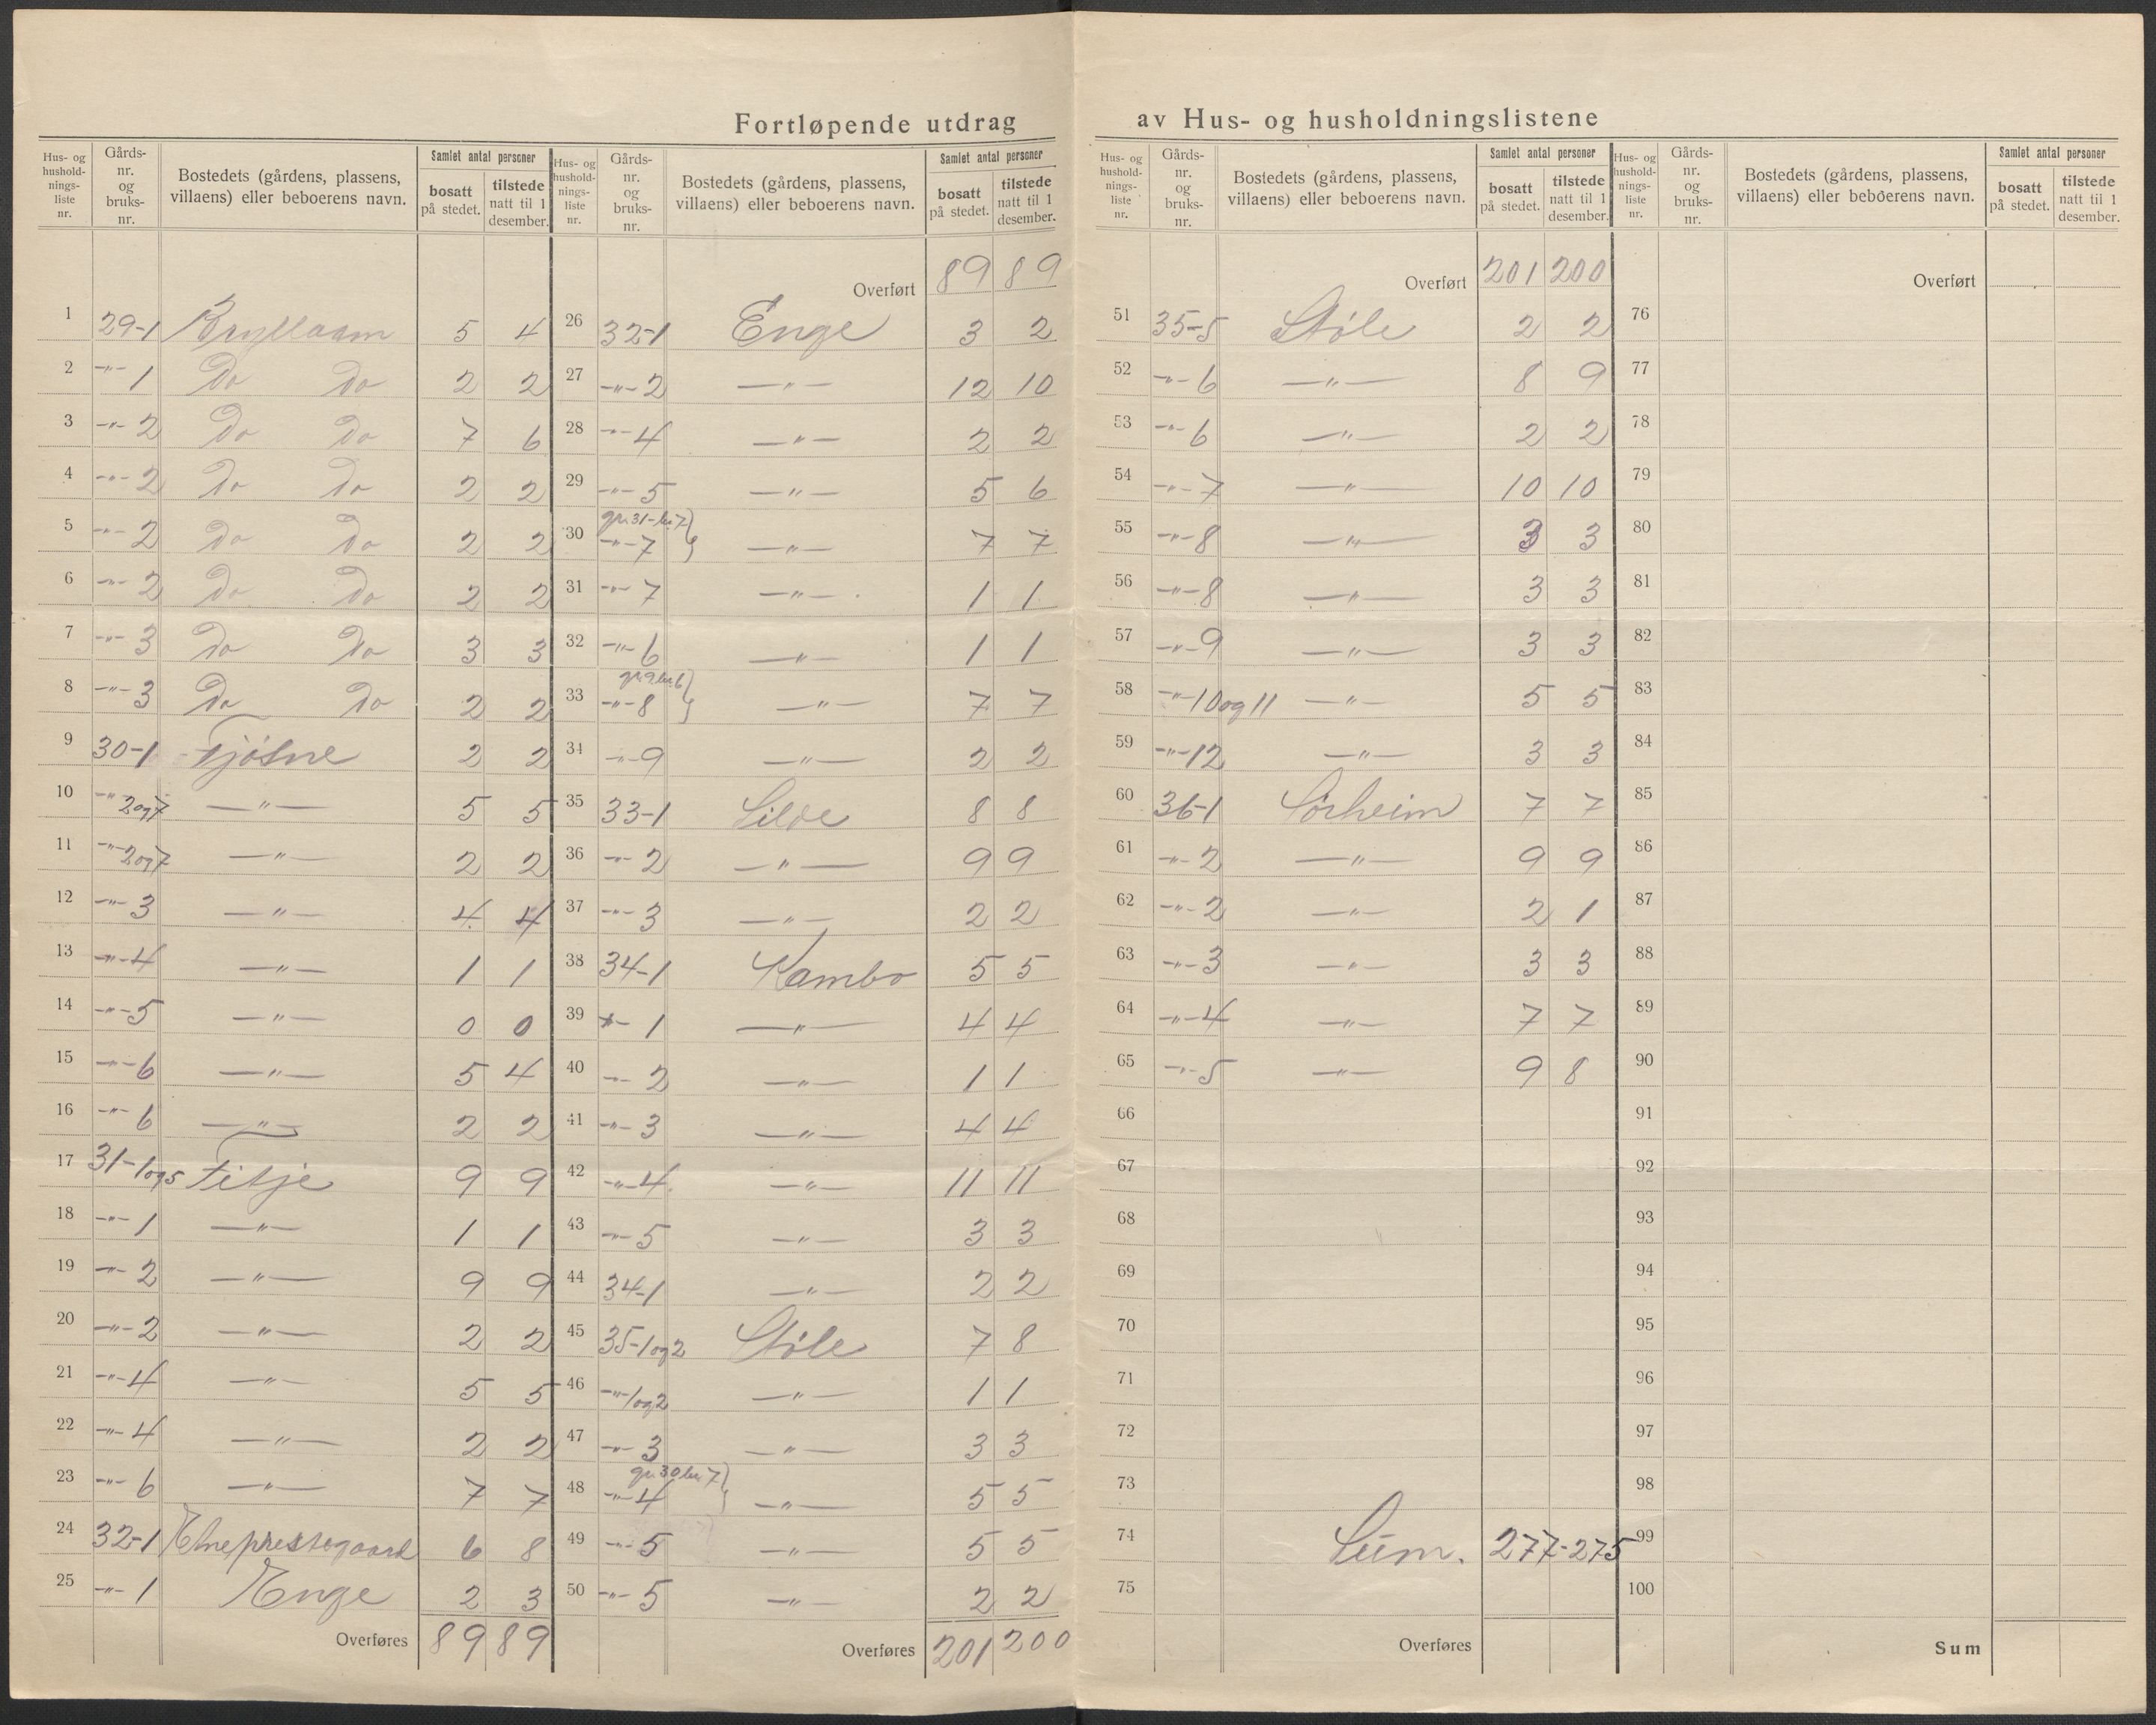 Fortløpende utdrag av Hus- og husholdningslistene
Hus- og hushold-nings-liste nr. Gårds-nr. og bruks-nr. Bostedets (gårdens, plassens, villaens) eller beboerens navn. Samlet antal personer bosatt på stedet. tilstede natt til 1 desember.
1 29-1 5 4
2 -"- 1 Do Do 2 2
3 -"- 2 Do Do 7 6
4 -"- 2 Do Do 2 2
5 -"- 2 Do Do 2 2
6 -"- 2 Do Do 2 2
7 -"- 3 Do Do 3 3
8 -"- 3 Do Do 2 2
9 30-1 Fjøsne 2 2
10 -"- 2og7 -"- 5 5
11 -"- 2og7 -"- 2 2
12 -"- 3 -"- 4 4
13 -"- 4 -"- 1 1
14 -"- 5 -"- 0 0
15 -"- 6 -"- 5 4
16 -"- 6 -"- 2 2
17 31-1og5 Fitje 9 9
18 -"- 1 -"- 1 1
19 -"- 2 -"- 9 9
20 -"- 2 -"- 2 2
21 -"- 4 -"- 5 5
22 -"- 4 -"- 2 2
23 -"- 6 -"- 7 7
24 32-1 Etneprestegaard 6 8
25 -"- 1 Enge 2 3
Overføres 89 89
Hus- og hushold-nings-liste nr. Gårds-nr. og bruks-nr. Bostedets (gårdens, plassens, villaens) eller beboerens navn. Samlet antal personer bosatt på stedet. tilstede natt til 1 desember.
Overført 89 89
26 32-1 Enge 3 2
27 -"- 2 -"- 12 10
28 -"- 4 -"- 2 2
29 -"- 5 -"- 5 6
gr. 31-br. 7 }
30 -"- 7 -"- 7 7
31 -"- 7 -"- 1 1
32 -"- 6 -"- 1 1
gr. 9 br. 6 }
33 -"- 8 -"- 7 7
34 -"- 9 -"- 2 2
35 33-1 Silde 8 8
36 -"- 2 -"- 9 9
37 -"- 3 -"- 2 2
38 34-1 Kambo 5 5
39 -"- 1 -"- 4 4
40 -"- 2 -"- 1 1
41 -"- 3 -"- 4 4
42 -"- 4. -"- 11 11
43 -"- 5 -"- 3 3
44 34-1 -"- 2 2
45 35-1og2 Støle 7 8
46 -"- 1og2 -"- 1 1
47 -"- 3 -"- 3 3
gr. 30 br. 7 }
48 -"- 4 -"- 5 5
49 -"- 5 -"- 5 5
50 -"- 5 -"- 2 2
Overføres 201 200
Hus- og hushold-nings-liste nr. Gårds-nr. og bruks-nr. Bostedets (gårdens, plassens, villaens) eller beboerens navn. Samlet antal personer bosatt på stedet. tilstede natt til 1 desember.
Overført 201 200
51 35-5 Støle 2 2
52 -"- 6 -"- 8 9
53 -"- 6 -"- 2 2
54 -"- 7 -"- 10 10
55 -"- 8 -"- 3 3
56 -"- 8 -"- 3 3
57 -"- 9 -"- 3 3
58 -"- 10og11 -"- 5 5
59 -"- 12 -"- 3 3
60 36-1 Sørheim 7 7
61 -"- 2 -"- 9 9
62 -"- 2 -"- 2 1
63 -"- 3 -"- 3 3
64 -"- 4 -"- 7 7
65 -"- 5 -"- 9 8
66
67
68
69
70
71
72
73
74 Sum. 277-275
75
Overføres
Hus- og hushold-nings-liste nr. Gårds-nr. og bruks-nr. Bostedets (gårdens, plassens, villaens) eller beboerens navn. Samlet antal personer bosatt på stedet. tilstede natt til 1 desember.
Overført
76
77
78
79
80
81
82
83
84
85
86
87
88
89
90
91
92
93
94
95
96
97
98
99
100
Sum